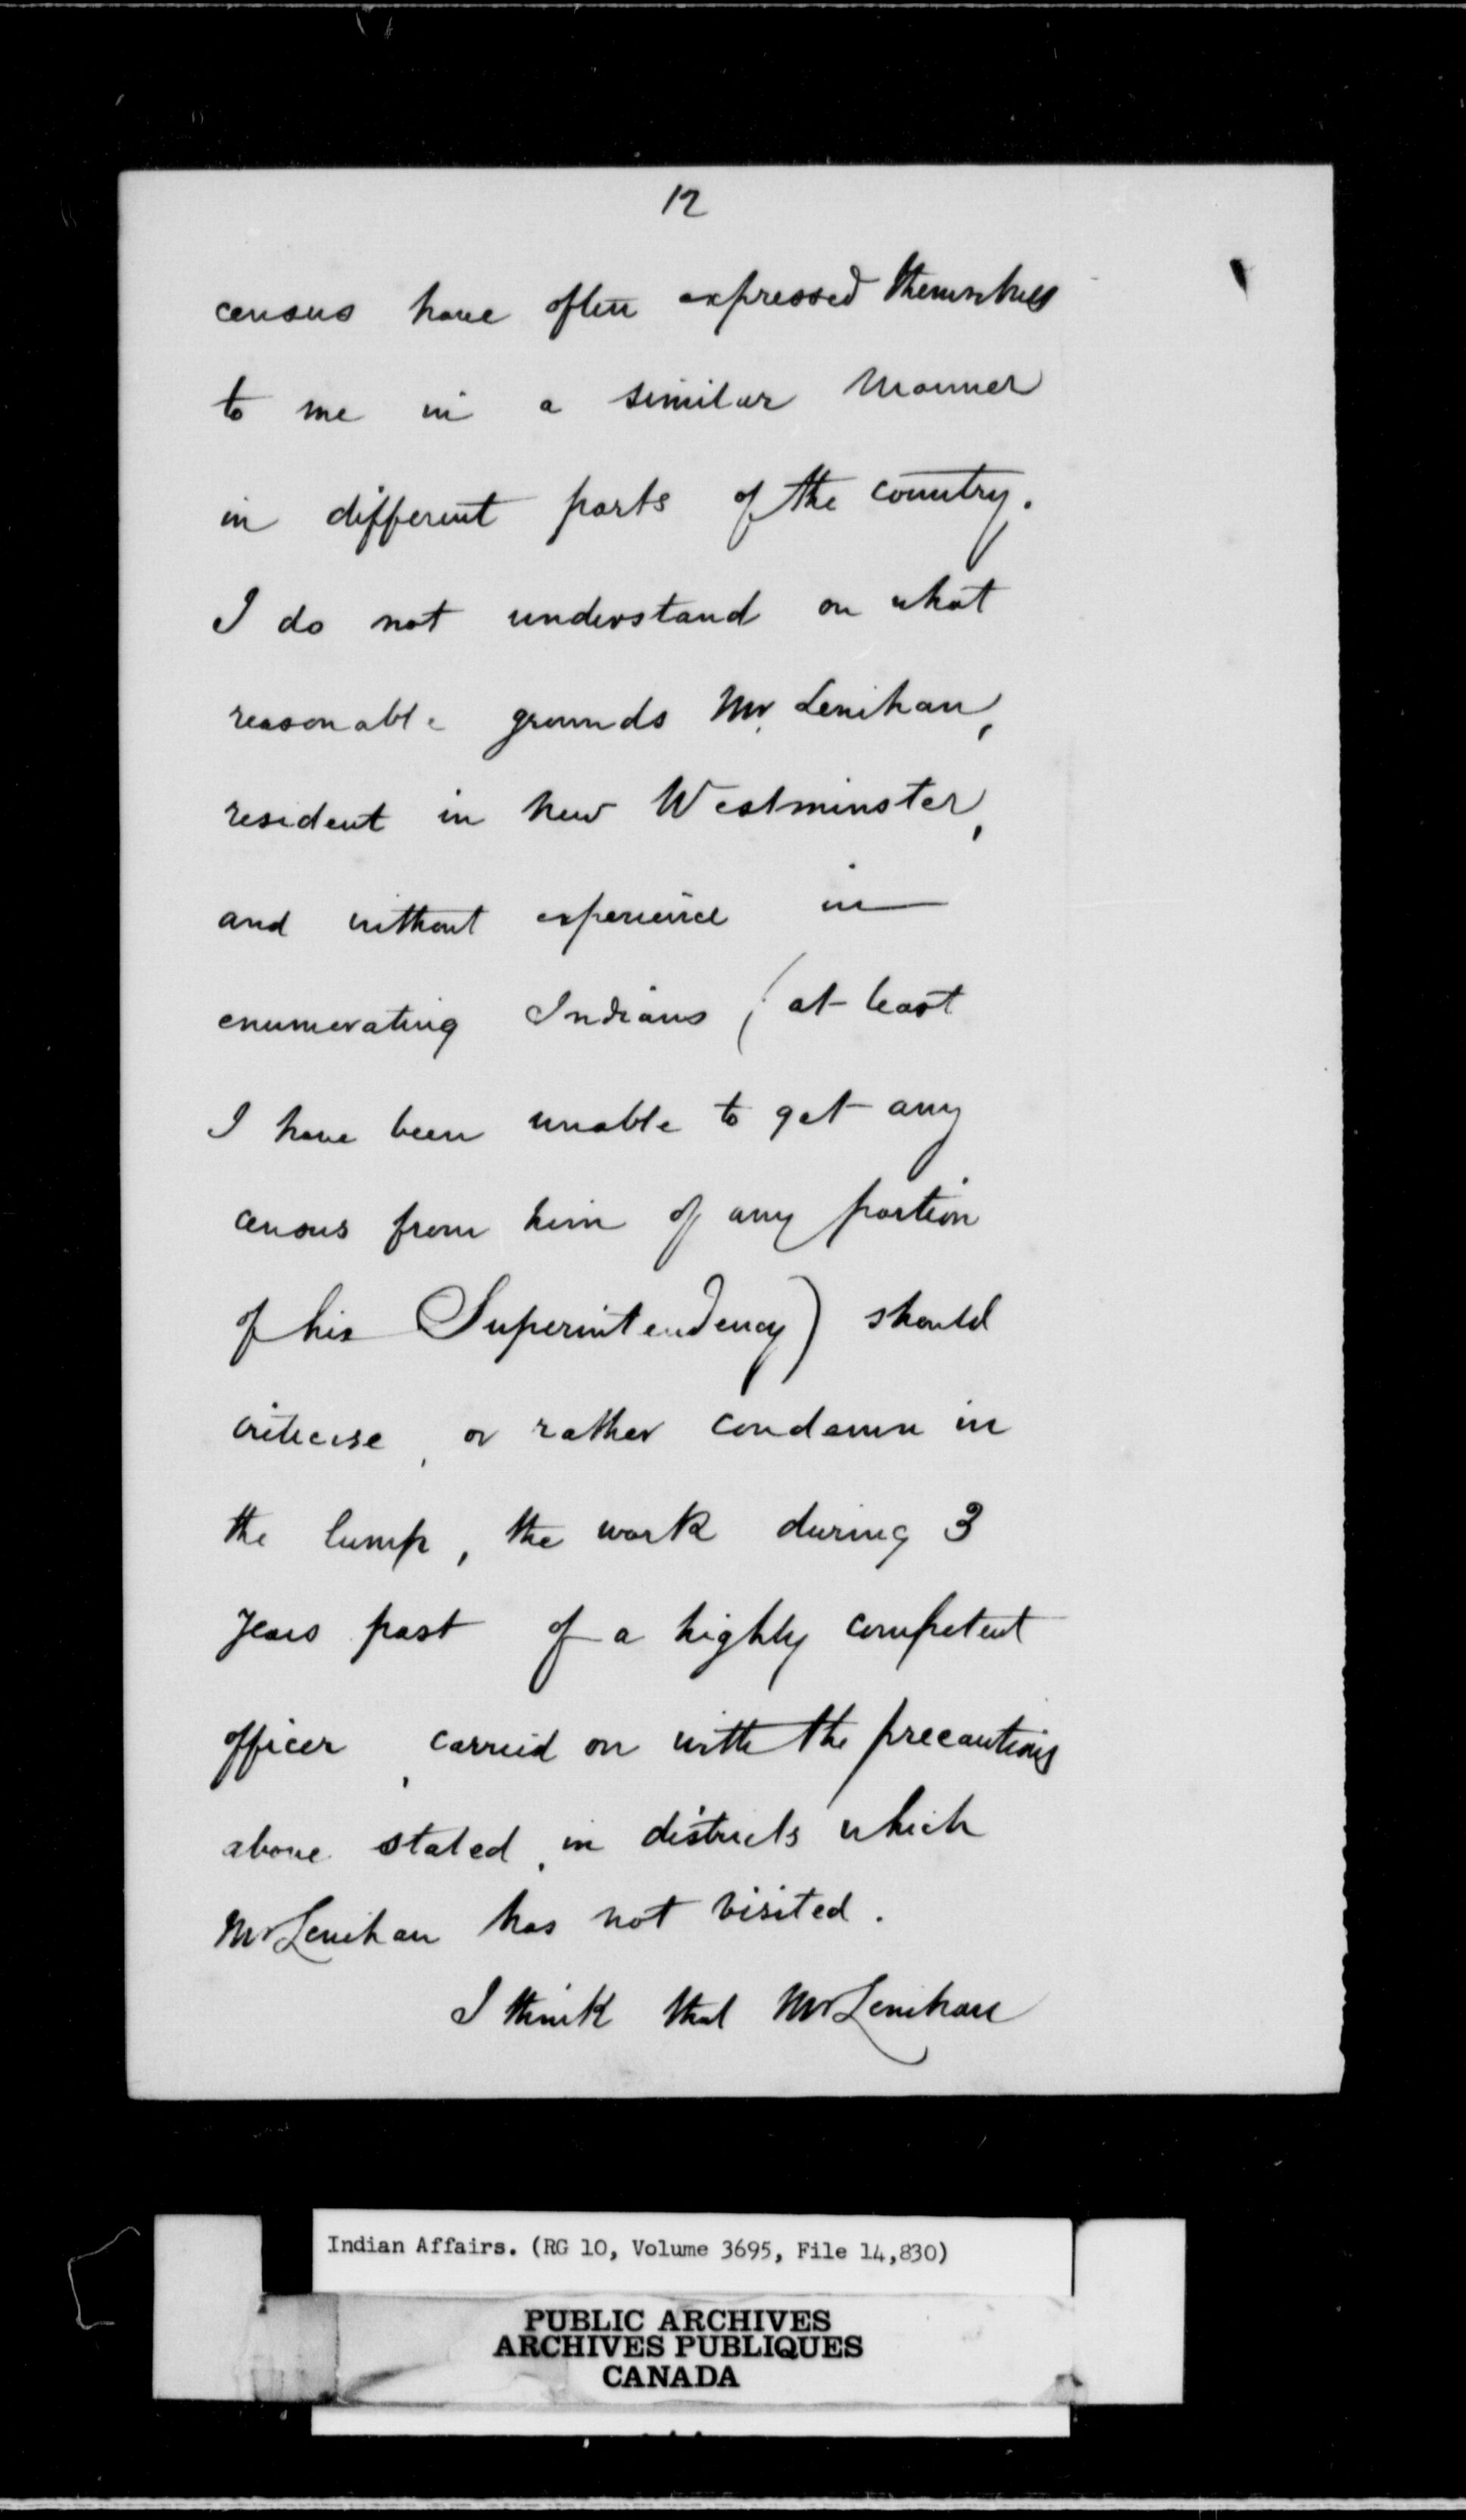 12
census have often expressed themselves
to me in a similar manner
in different parts of the country.
I do not understand on what
reasonable grounds Mr. Lenihan,
resident in New Westminster,
and without experience in
enumerating Indians (at least
I have been unable to get any
census from him of any portion
of his Superintendency) should
criticise, or rather condemn in
the lump, the work during 3
years past of a highly competent
officer, carried on with the precautions
above stated, in districts which
Mr Lenihan has not visited.
I think that Mr Lenihan
Indian Affairs. (RG 10, Volume 3695, File 14,830)
PUBLIC ARCHIVES
ARCHIVES PUBLIQUES
CANADA